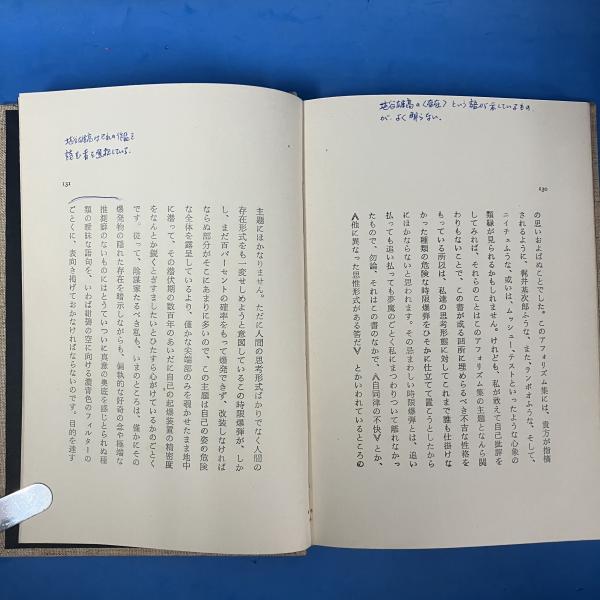 埴谷雄高の〈存在〉という語が示しているもの
が、よく明らない。
130
の思いおよばぬことでした。このアフォリズム集には、貴方が指摘
されるように、梶井基次郎ふうな、また、ランボオふうな、そして、
ニイチェふうな、或いは、ムッシュー・テストといったような心象の
類縁が見られるかもしれません。けれども、私が敢えて自己批評を
してみれば、それらのことはこのアフォリズム集の主題となんら関
わりもないことで、この書が或る箇所に埋めらるべき不吉な性格を
もっている所以は、私達の思考形態に対してこれまで誰も仕掛けな
かった種類の危険な時限爆弾をひそかに仕立てて置こうとしたから
にほかならないと思われます。その忌まわしい時限爆弾とは、追い
払っても追い払っても夢魔のごとく私にまつわりついて離れなかっ
たもので、勿論、それはこの書のなかで、〈自同律の不快〉とか、
〈他に異なった思惟形式がある筈だ〉とかいわれているところの
埴谷雄高はこの作品を
読む者を選択している。
131
主題にほかなりません。ただに人間の思考形式ばかりでなく人間の
存在形式をも一変せしめようと意図しているこの時限爆弾が、しか
し、まだ百パーセントの確率をもって爆発できず、改装しなければ
ならぬ部分がそこにあまりに多いので、この主題は自己の姿の危険
な全体を露呈しているより、僅かな尖端部のみを覗かせたまま地中
に潜って、その潜伏期の数百年のあいだに自己の起爆装置の精密度
をなんとか鋭くとぎすましたいとひたすら心がけているかのごとく
です。従って、陰謀家たるべき私も、いまのところは、僅かにその
爆発物の隠れた存在を暗示しながらも、偏執的な好奇の念や極端な
推測癖のないものにはとうていついに真意の奥底を感じとられぬ種
類の曖昧な語句を、いわば紺碧の空に向ける濃青色のフィルターの
ごとくに、表向き掲げておかなければならないのです。目的を達す